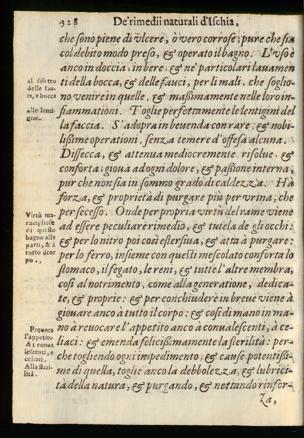 328 De' rimedii naturali d'Ischia,
che sono piene di vlcere, ò vero corrose; pure che sia
col debito modo preso, & operato il bagno. L'vso è
anco in doccia, in bere, & ne' particulari lauamen-
Al difetto delle fauci, e bocca
ti della bocca, & delle fauci, per li mali, che soglio-
no venire in quelle, & maßimamente nelle loro in-
alle lentigini.
fiammationi. Toglie perfettamente le lentigini del
la faccia. S'adopra in beuenda con rare, & nobi-
lißime operationi, senza temere d'offesa alcuna.
Dissecca, & attenua mediocremente, risolue, &
conforta: gioua ad ogni dolore, & paßione interna,
pur che non sia in sommo grado di caldezza. Hà
forza, & proprietà di purgare più per vrina, che
per secesso. Onde per propria virtù del rame viene
Virtù marauigliose di questo bagno alle parti, & à tutto il corpo.
ad essere peculiare rimedio, & tutela de gli occhi:
& per lo nitro poi così essersiua, & atta à purgare:
per lo ferro, insieme con questi mescolato conforta lo
stomaco, il fegato, le reni, & tutte l'altre membra,
così al notrimento, come alla generatione, dedica-
te, & proprie: & per conchiudere in breue viene à
giouare anco à tutto il corpo: & così di mano in ma-
Prouoca l'appetito
no à reuocare l'appetito anco à conualescenti, à ce-
A i conualescenti, e celiaci.
liaci: & emenda felicißimamente la sterilità: per-
che togliendo ogni impedimento, & cause potentißi-
Alla sterilità.
me di quella, toglie anco la debbolezza, & lubrici-
tà della natura, & purgando, & nettando rinfor-
za,